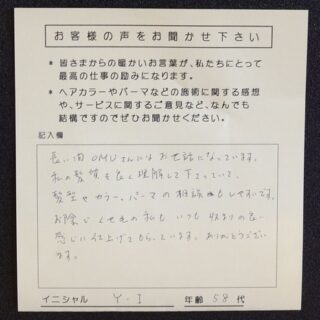 お客様の声をお聞かせ下さい
* 皆さまからの暖かいお言葉が、私たちにとって
最高の仕事の励みになります。
* ヘアカラーやパーマなどの施術に関する感想
や、サービスに関するご意見など、なんでも
結構ですのでぜひお聞かせください。
記入欄
長い間OMUさんにはお世話になっています。
私の髪質を良く理解して下さっていて、
髪型やカラー、パーマの相談もしやすいです。
お陰でくせ毛の私もいつも収まりの良い
感じに仕上げてもらっています。ありがとうござい
ます。
イニシャル Y・I 年齢 58 代